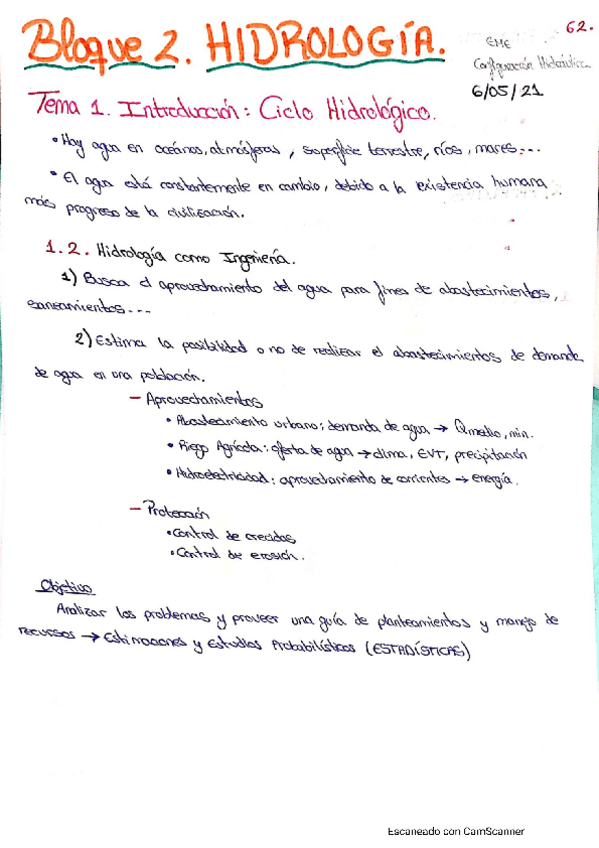 62.
Bloque 2. HIDROLOGÍA.
EME
Configuración Hidráulica
6/05/21
Tema 1. Introducción: Ciclo Hidrológico.
• Hay agua en océanos, atmósferas, superficie terrestre, ríos, mares...
• El agua está constantemente en cambio, debido a la existencia humana
más progreso de la civilización.
1.2. Hidrología como Ingeniería.
1) Busca el aprovechamiento del agua para fines de abastecimientos,
saneamientos...
2) Estima la posibilidad o no de realizar el abastecimientos de demanda
de agua en una población.
- Aprovechamientos
• Abastecimiento urbano: demanda de agua → Qmedio, min.
• Riego Agrícola: oferta de agua → clima, EVT, precipitación
• Hidroelectricidad: aprovechamiento de corrientes → energía.
- Protección
• Control de crecidas
• Control de erosión.
Objetivo
Analizar los problemas y proveer una guía de planteamientos y manejo de
recursos → Estimaciones y estudios Probabilísticos (ESTADÍSTICAS)
Escaneado con CamScanner